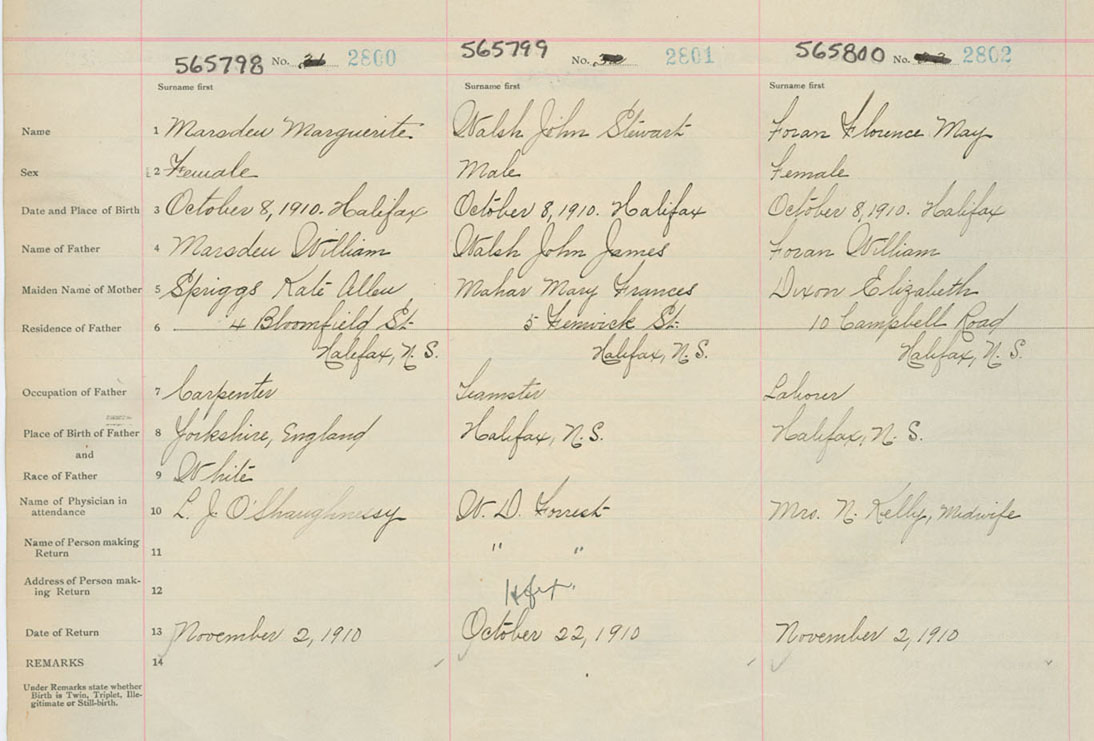 565798 No. 2800 565799 No. 2801 565800 No. 2802
Surname first Surname first Surname first
Name 1 Marsden Marguerite Walsh John Stewart Foran Florence May
Sex 2 Female Male Female
Date and Place of Birth 3 October 8, 1910. Halifax October 8, 1910. Halifax October 8, 1910. Halifax
Name of Father 4 Marsden William Walsh John James Foran William
Maiden Name of Mother 5 Spriggs Kate Allen Mahar Mary Frances Dixon Elizabeth
Residence of Father 6 4 Bloomfield St. 5 Fenwick St. 10 Campbell Road
Halifax, N.S. Halifax, N.S. Halifax, N.S.
Occupation of Father 7 Carpenter Teamster Laborer
Place of Birth of Father 8 Yorkshire, England Halifax, N.S. Halifax, N.S.
and
Race of Father 9 White
Name of Physician in
attendance 10 L. J. O'Shaughnessy W. D. Forrest Mrs. N. Kelly, Midwife
Name of Person making
Return 11 " "
Address of Person mak-
ing Return 12 Hfx.
Date of Return 13 November 2, 1910 October 22, 1910 November 2, 1910
REMARKS 14
Under Remarks state whether
Birth is Twin, Triplet, Ille-
gitimate or Still-birth.